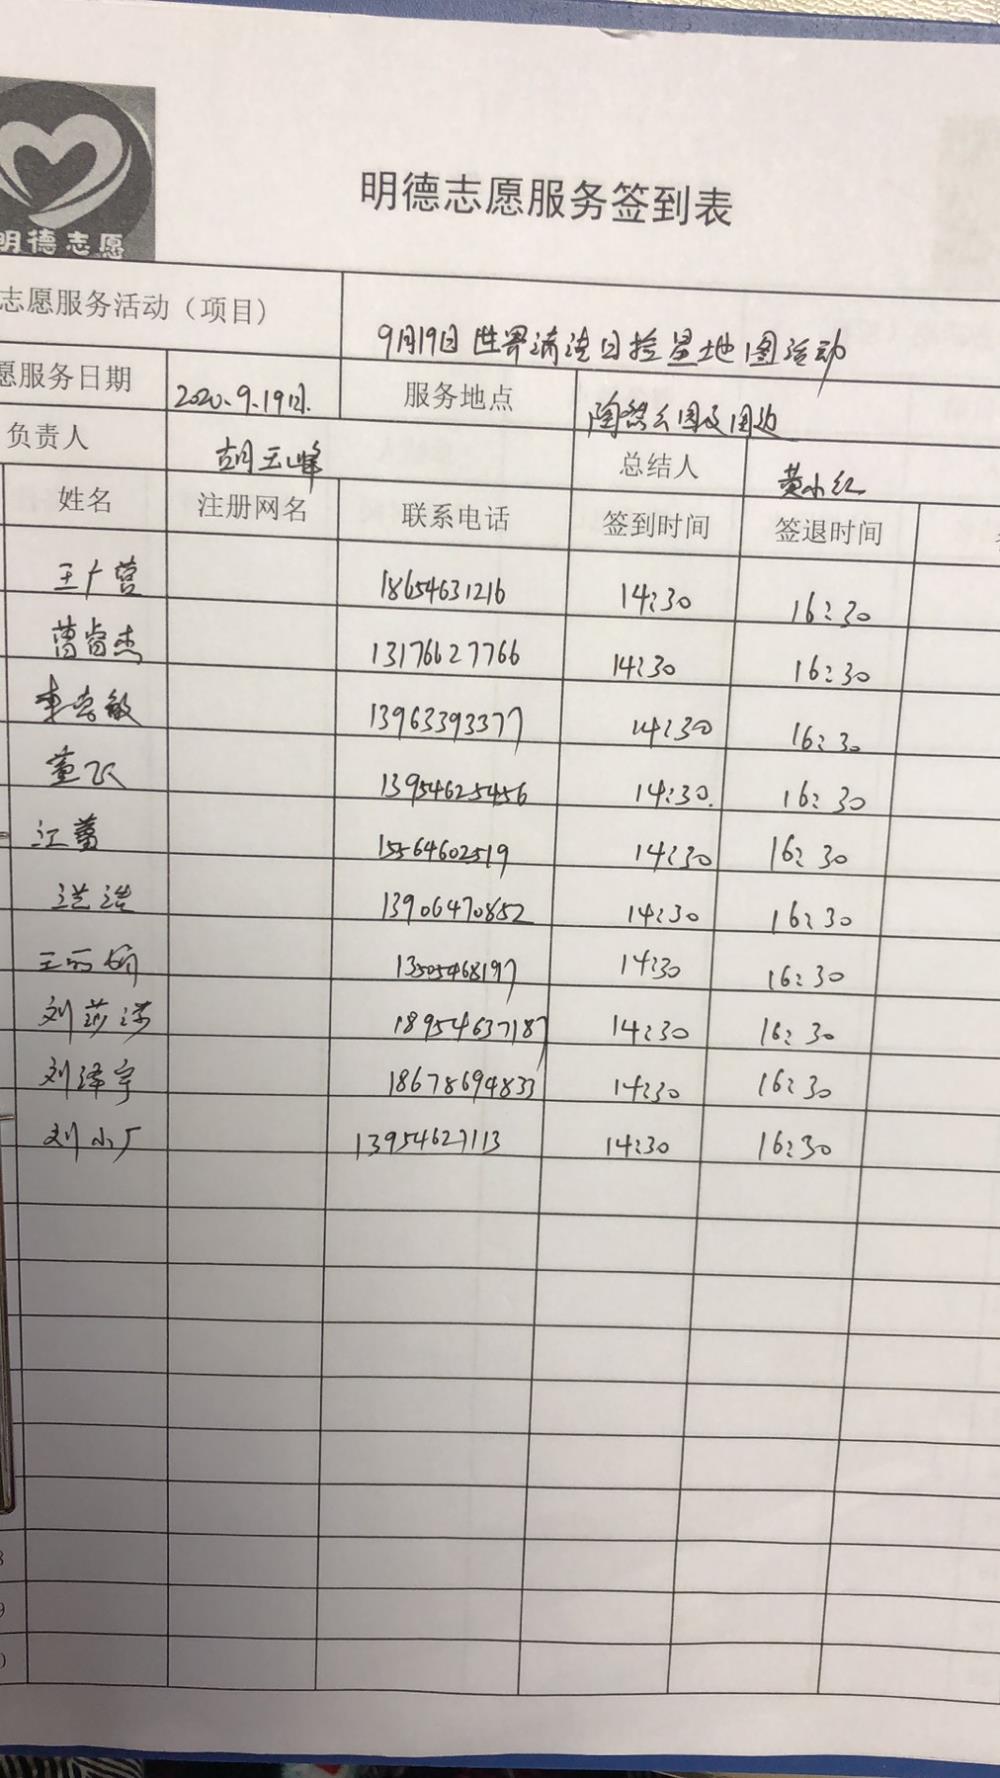 明德志愿
明德志愿服务签到表
志愿服务活动（项目） 9月19日世界清洁日捡星地图活动
愿服务日期 2020.9.19日. 服务地点 陶然公园及周边
负责人 胡玉峰 总结人 黄小红
姓名 注册网名 联系电话 签到时间 签退时间
王广营 18654631216 14:30 16:30
曹睿杰 13176627766 14:30 16:30
13963393377 14:30 16:30
董飞 13954625456 14:30. 16:30
江蕾 15564602519 14:30 16:30
13906470852 14:30 16:30
13505468197 14:30 16:30
刘莎莎 18954637187 14:30 16:30
刘泽宇 18678694833 14:30 16:30
刘小厂 13954627113 14:30 16:30
8
9
0